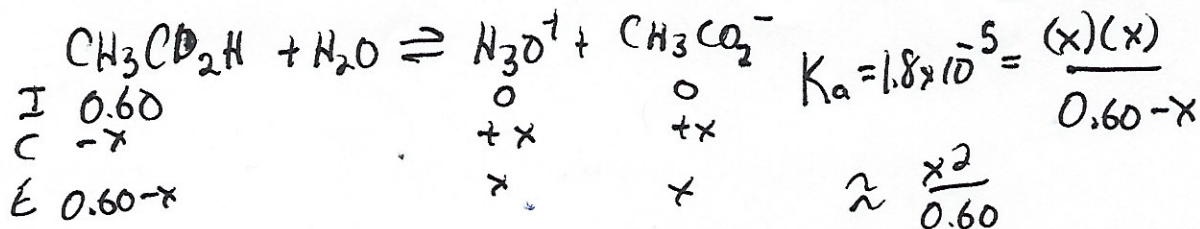 CH₃CO₂H + H₂O ⇌ H₃O⁺ + CH₃CO₂⁻ Ka = 1.8x10⁻⁵ = (x)(x) / 0.60-x
I 0.60 0 0
C -x +x +x
E 0.60-x x x ≈ x² / 0.60